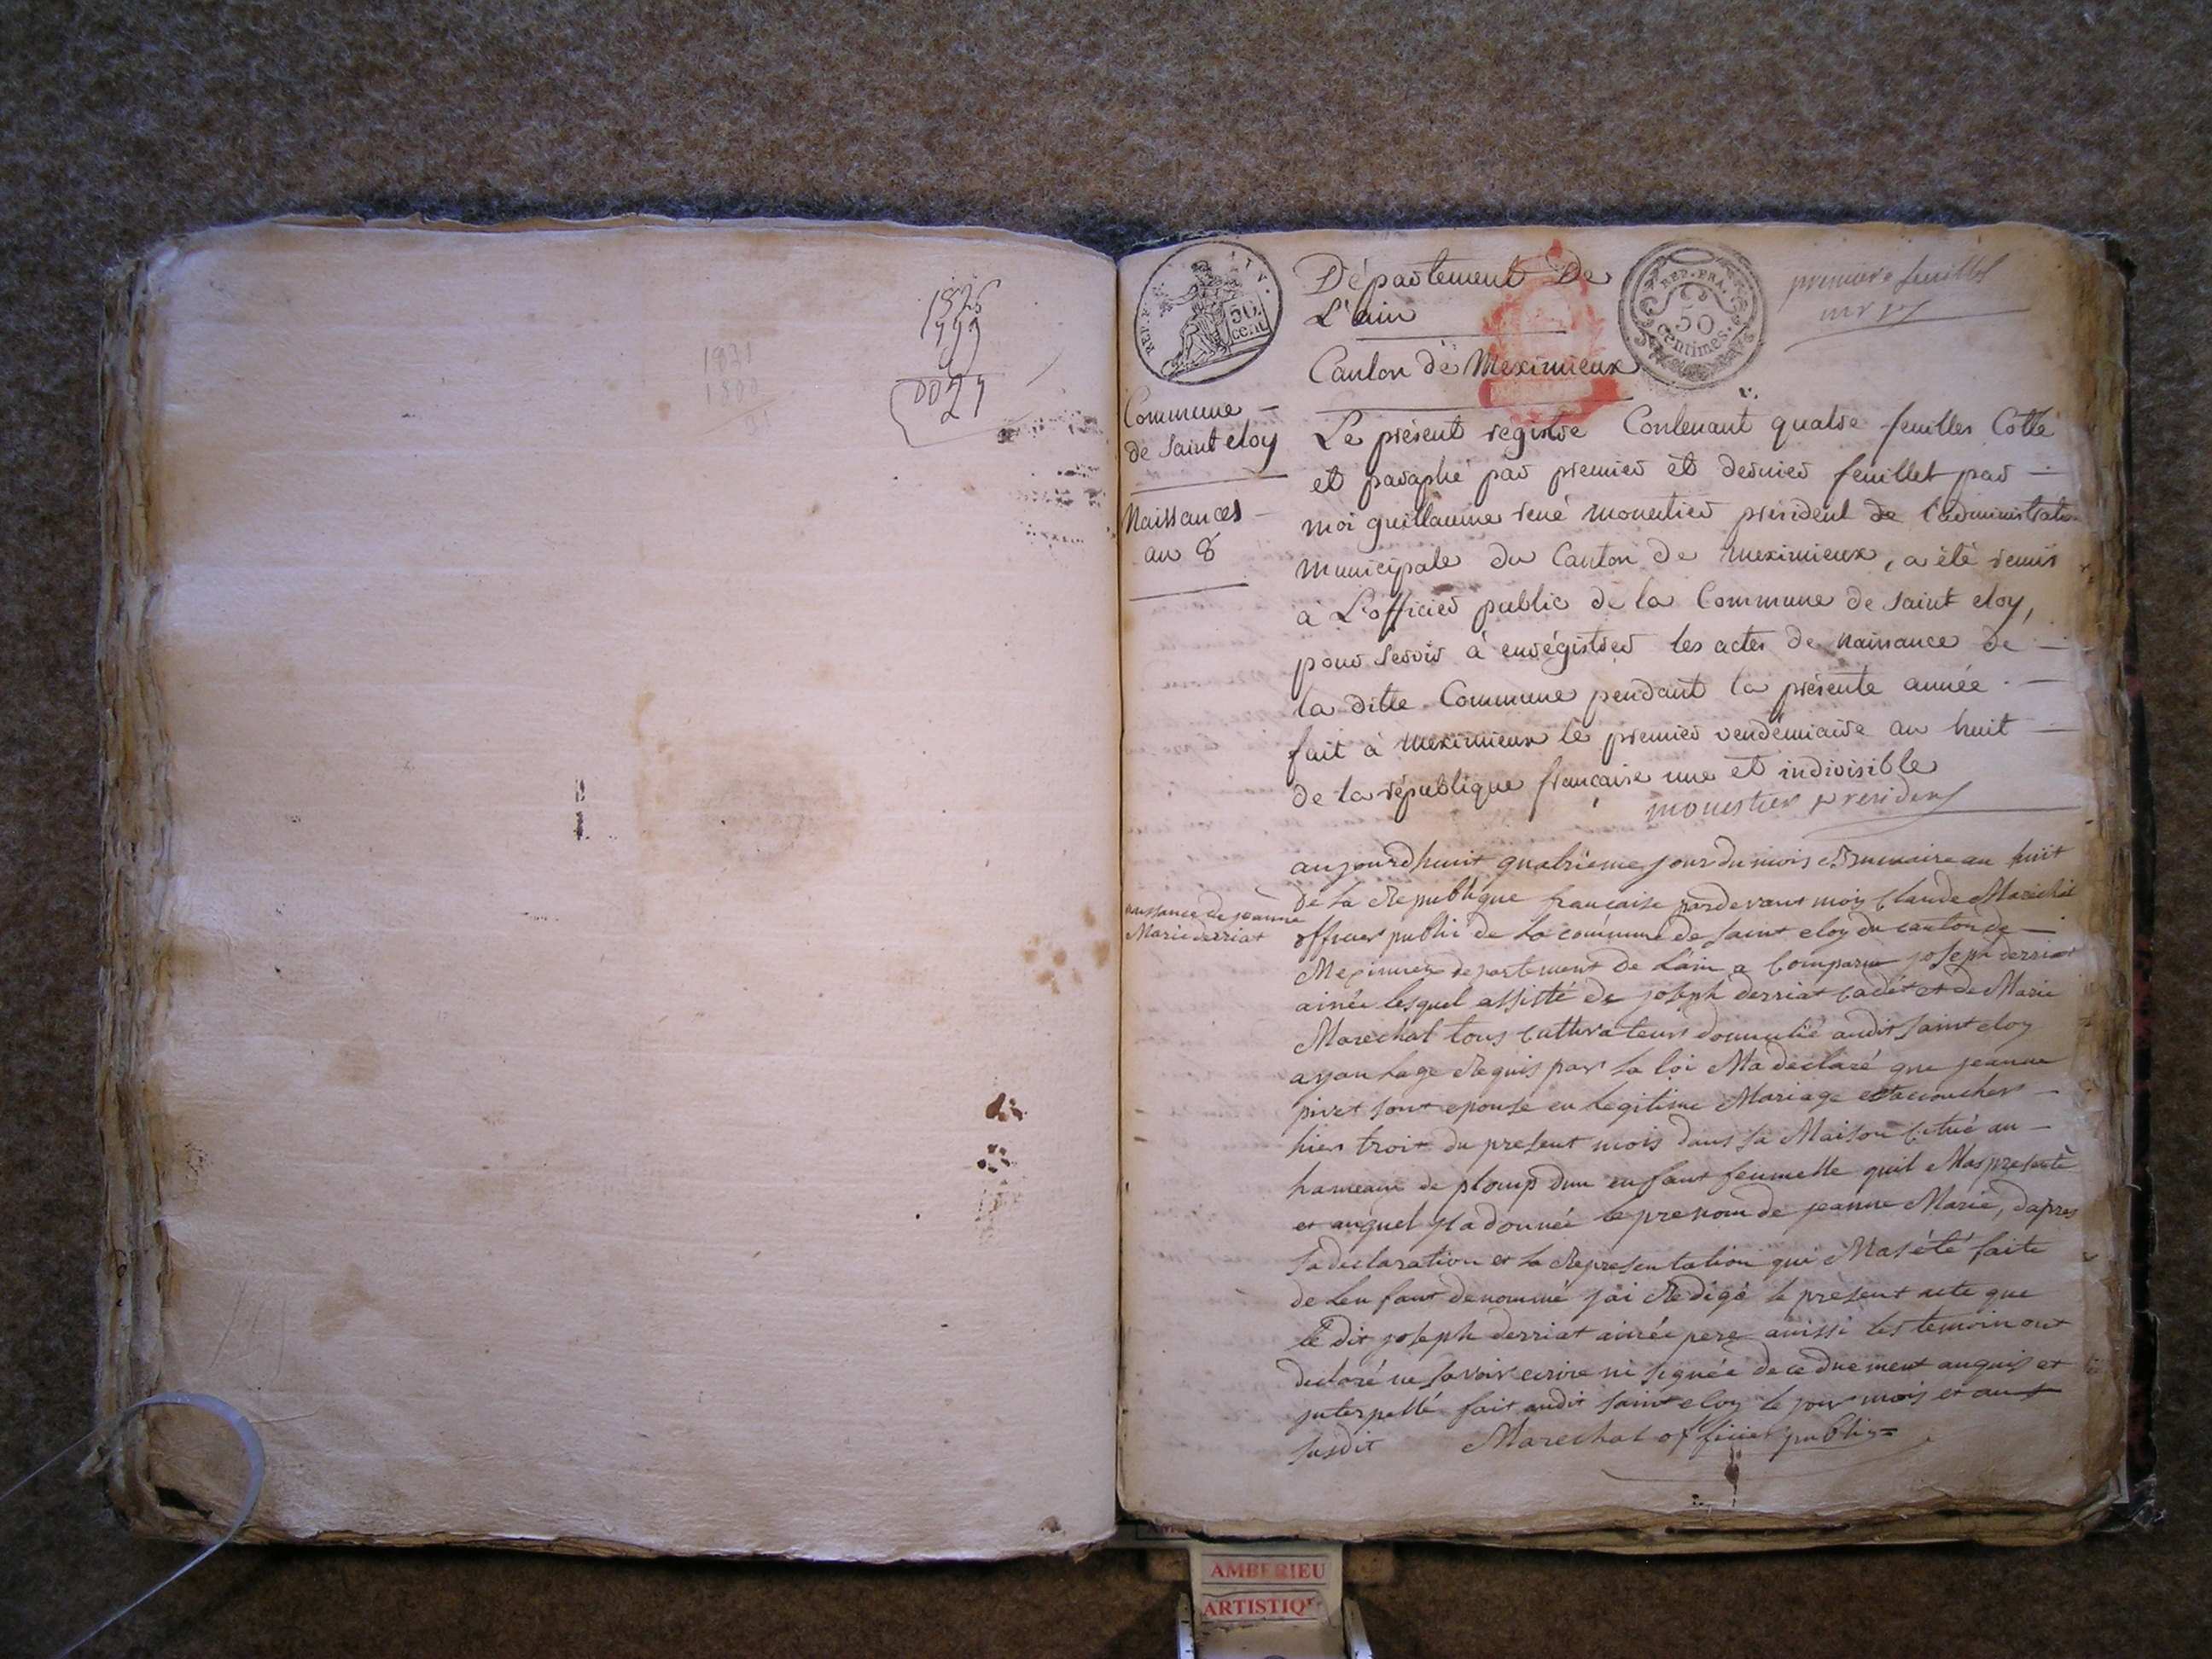 1826
1799
0027
1821
1800
REP. FRA.
50
cent
Département De
L'ain
Canton de Meximieux
REP. FRA.
50
centimes.
premier feuillet
Commune
de saint eloy
Naissances
an 8
Le présent registre Contenant quatre feuilles Cotté
et paraphé par premier et dernier feuillet par
moi guillaume rené monestier président de l'administrat.
municipale du Canton de meximieux, a été remis
à L'officier public de la Commune de saint eloy,
pour servir à enrégistrer les actes de naissance de
la ditte Commune pendant la présente année.
fait à meximieux le premier vendémiaire an huit
de la république française une et indivisible
monestier president
naissance de jeanne
Marie derriat
aujourdhuit quatrieme jour du mois Brumaire an huit
de la Republique francaise pardevant moy Claude Marechal
officier public de la commune de saint eloy du canton de
Meximiez departement de Lain a Comparu joseph derriat
ainée lesquel assisté de joseph derriat cadet et de Marie
Marechal tous Cultivateurs domicilié audit saint eloy
ayan lage Requis par la loi Ma declaré que jeanne
pivet sont epouse en legitime Mariage et accoucher
hier troit du present mois dans sa Maison situé au
hameaux de ploup dun enfant feumelle quil Mas presenté
et auquel jl a donnée le prenom de jeanne Marie, dapres
sa declaration et la Representation qui Mas été faite
de Lenfant denommé jai Redigé le present acte que
le dit joseph derriat ainée pere ainssi les temoin ont
declaré ne savoir ecrire ni signée de ce duement anquis et
jnterpellé fait audit saint eloy le jour mois et an
susdit Marechal officier public
AMBERIEU
ARTISTIQ